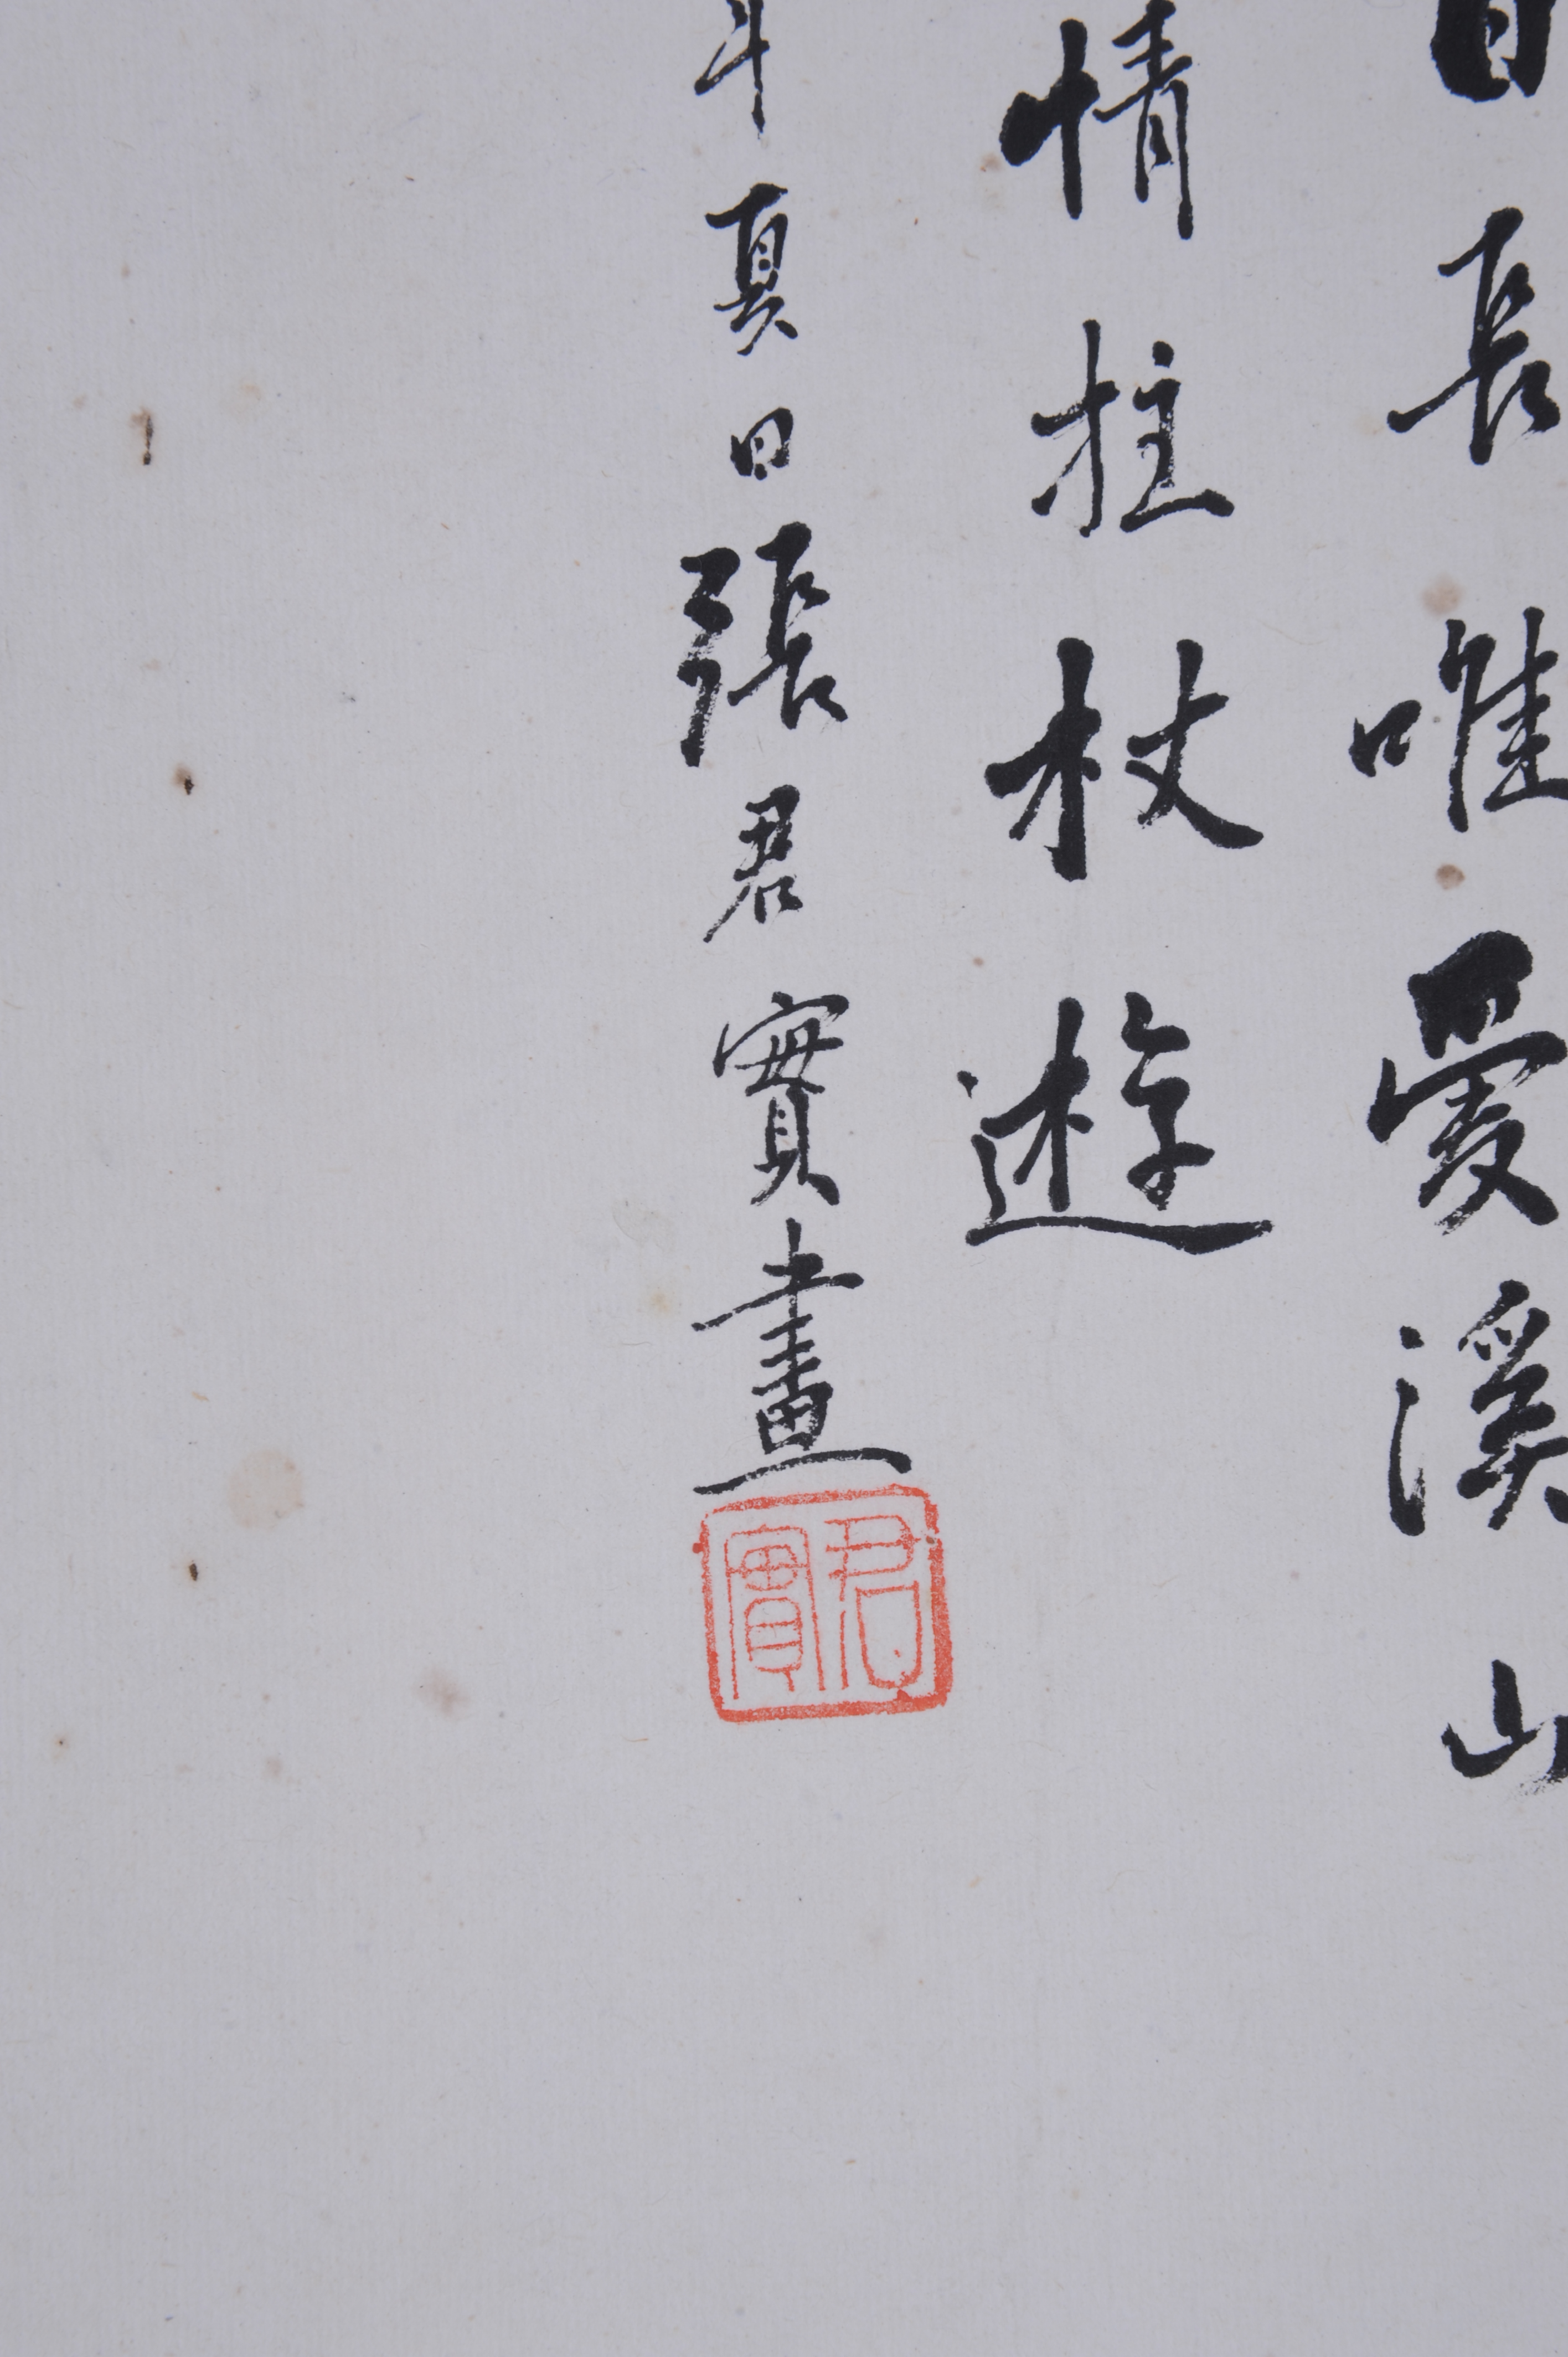 長唯愛溪山
情拄杖遊
年夏日張君實畫
君實